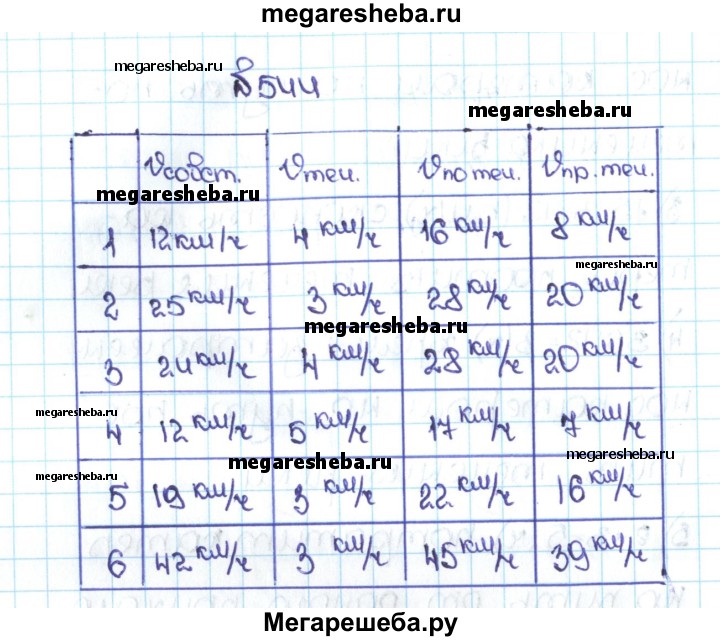 megaresheba.ru
megaresheba.ru
№544
megaresheba.ru
Vсобст. Vтеч. Vпо теч. Vпр. теч.
megaresheba.ru
1 12 км/ч 4 км/ч 16 км/ч 8 км/ч
megaresheba.ru
2 25 км/ч 3 км/ч 28 км/ч 20 км/ч
megaresheba.ru
3 24 км/ч 4 км/ч 28 км/ч 20 км/ч
megaresheba.ru
4 12 км/ч 5 км/ч 17 км/ч 7 км/ч
megaresheba.ru
megaresheba.ru
megaresheba.ru
5 19 км/ч 3 км/ч 22 км/ч 16 км/ч
6 42 км/ч 3 км/ч 45 км/ч 39 км/ч
Мегарешеба.ру